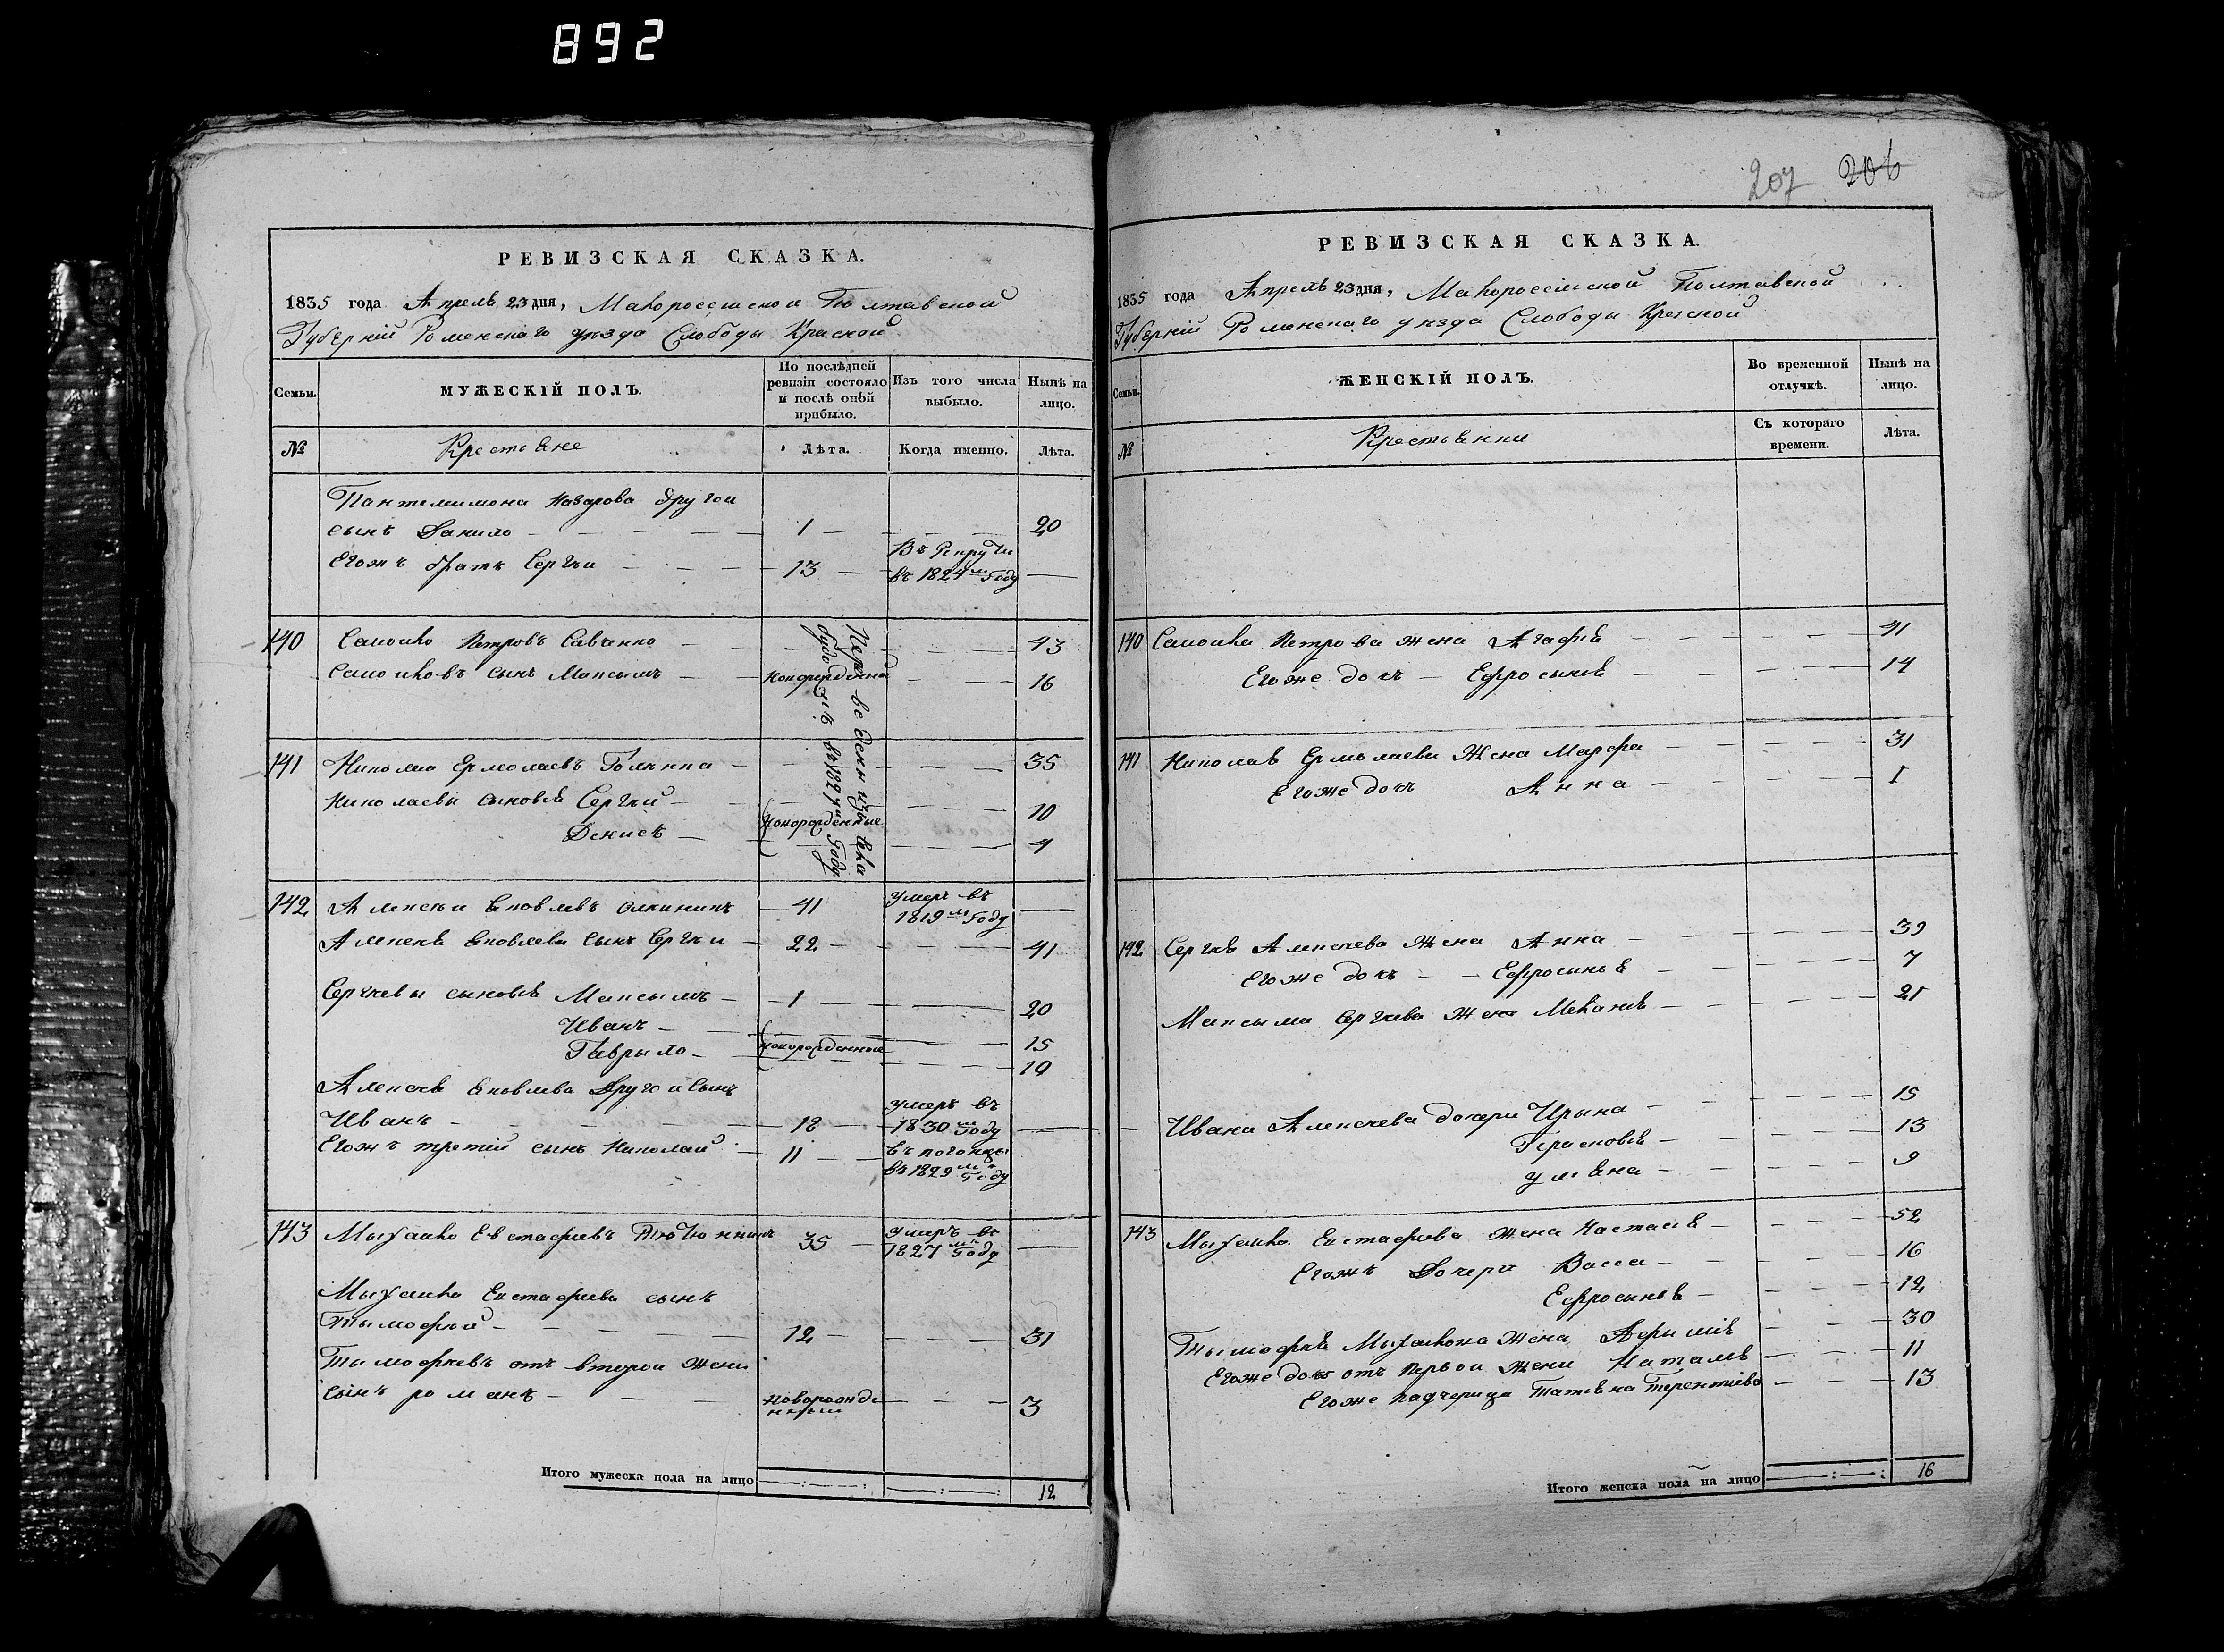 892
207 206
РЕВИЗСКАЯ СКАЗКА.
1835 года Апрель 23 дня, Малороссійской Полтавской
Губерніи Роменскаго уезда Слободы Краской
Семьи.
МУЖЕСКІЙ ПОЛЪ.
По послѣдней ревизіи состояло и послѣ оной прибыло.
Изъ того числа выбыло.
Нынѣ на лицо.
№
Крестьяне
Лѣта.
Когда именно.
Лѣта.
Пантелимона Назарова другой
сынъ Данило 1 20
Егожъ братъ Сергѣй 13 Въ Рекруты въ 1824м Году
140 Самойло Петровъ Савченко 43
Самойловъ сынъ Максымъ Новорожденный 16
141 Николай Ермолаевъ 35
Николаевы сыновья Сергѣй 10
Новорожденные
Денисъ 4
въ 1827м Году
142 Алексѣй Яковлевъ 41 умеръ въ 1819м Году
Алексея Яковлева сынъ Сергѣй 22 41
Сергѣевы сыновья Максымъ 1 20
Иванъ 15
Новорожденные
Гаврыло 10
Алексея Яковлева Другой Сынъ
Иванъ 18 умеръ въ 1830м Году
Егожъ третій сынъ Николай 11 въ 1829м Году
143 Мыхайло Евстафіевъ 35 умеръ въ 1827м Году
Мыхайла Евстафіева сынъ
Тымофѣй 12 31
Тымофѣевъ отъ второй жены
сынъ романъ новорожденный 3
Итого мужеска пола на лицо 12
РЕВИЗСКАЯ СКАЗКА.
1835 года Апрель 23 дня, Малороссійской Полтавской
Губерніи Роменскаго уезда Слободы Краской
Семьи.
ЖЕНСКІЙ ПОЛЪ.
Во временной отлучкѣ.
Нынѣ на лицо.
№
Крестьянки
Съ котораго времени.
Лѣта.
140 Самойла Петрова жена Агафія 41
Егоже дочь Ефросынія 14
141 Николая Ермолаева Жена Марфа 31
Егоже дочь Анна 1
142 Сергѣя Алексеева Жена Анна 39
Егоже дочь Ефросинья 7
Максыма Сергѣева Жена Меланія 21
Ивана Алексеева дочери Ирына 15
Парасковія 13
ульяна 9
143 Мыхайла Евстафіева жена Настасія 52
Егожъ Дочери Васса 16
Ефросинья 12
Тымофѣя Мыхайлова жена 30
Егоже дочь отъ первой жены Наталія 11
Егоже падчерица Татьяна Терентіева 13
Итого женска пола на лицо 16